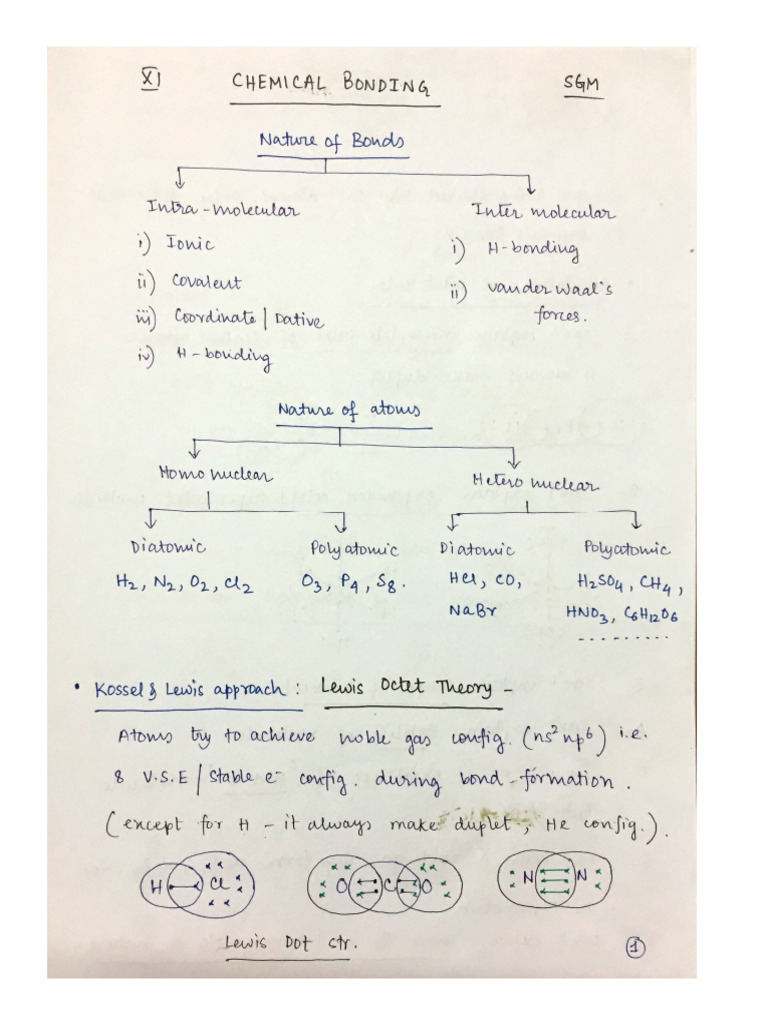 XI CHEMICAL BONDING SGM
Nature of Bonds
Intra-molecular Inter molecular
i) Ionic i) H-bonding
ii) Covalent ii) vander Waal's
iii) Coordinate / Dative forces.
iv) H-bonding
Nature of atoms
Homo nuclear Hetero nuclear
Diatomic Polyatomic Diatomic Polyatomic
H2, N2, O2, Cl2 O3, P4, S8. HCl, CO, H2SO4, CH4,
NaBr HNO3, C6H12O6
• Kossel & Lewis approach : Lewis Octet Theory -
Atoms try to achieve noble gas config. (ns²np⁶) i.e.
8 V.S.E / stable e⁻ config. during bond-formation.
(except for H - it always make duplet, He config.).
H Cl O C O N N
Lewis Dot str. 1